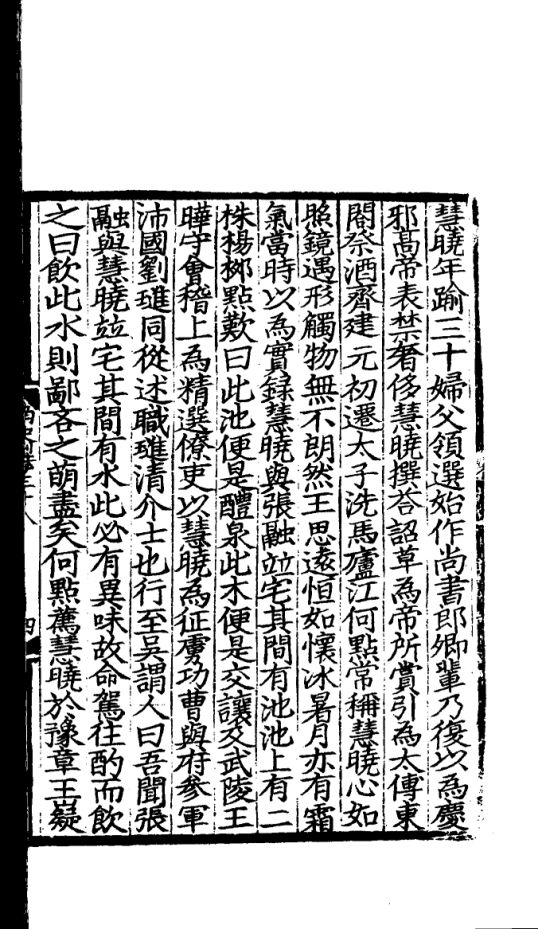 慧曉年踰三十婦父領選始作尚書郎卿輩乃復以為慶
邪髙帝表禁奢侈慧曉撰荅詔草為帝所賞引為太傅東
閤祭酒齊建元初遷太子洗馬廬江何點常稱慧曉心如
照鏡遇形觸物無不朗然王思遠恒如懷冰暑月亦有霜
氣當時以為實録慧曉與張融竝宅其間有池池上有二
株楊栁點歎曰此池便是醴泉此木便是交讓及武陵王
曄守會稽上為精選僚吏以慧曉為征虜功曹與府參軍
沛國劉璡同從述職璡清介士也行至吳謂人曰吾聞張
融與慧曉竝宅其間有水此必有異味故命駕往酌而飲
之曰飲此水則鄙吝之萌盡矣何點薦慧曉於豫章王嶷
三十八
四